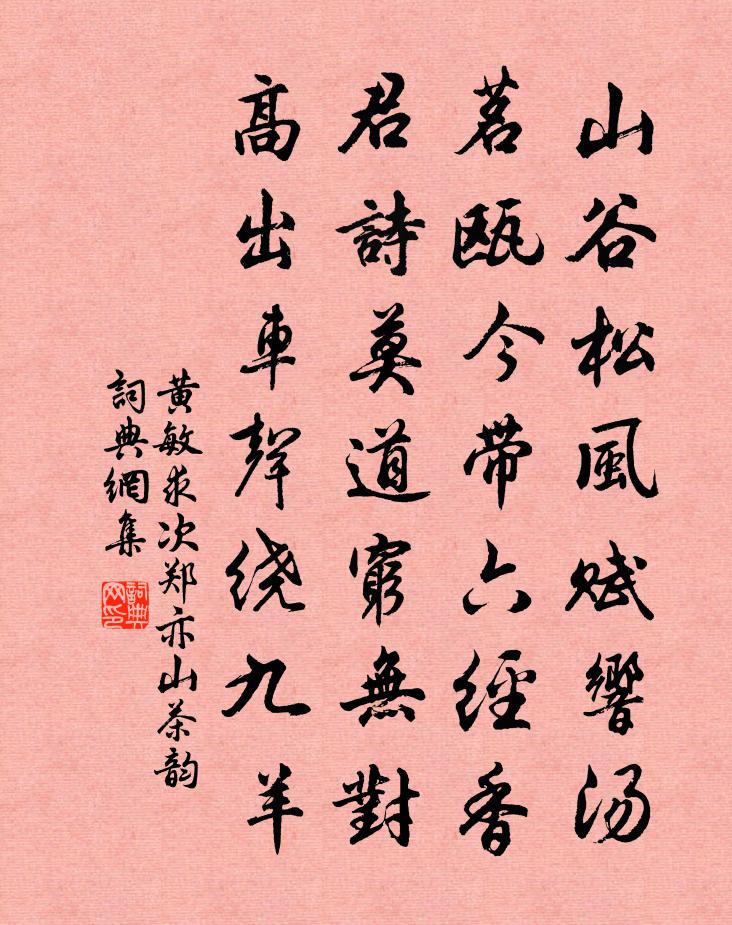 山谷松風賦響汤
茗瓯今带六經香
君詩莫道窮無對
高出車聲绕九羊
黄敏求次郑亦山茶韵
詞典網集
詞典网印